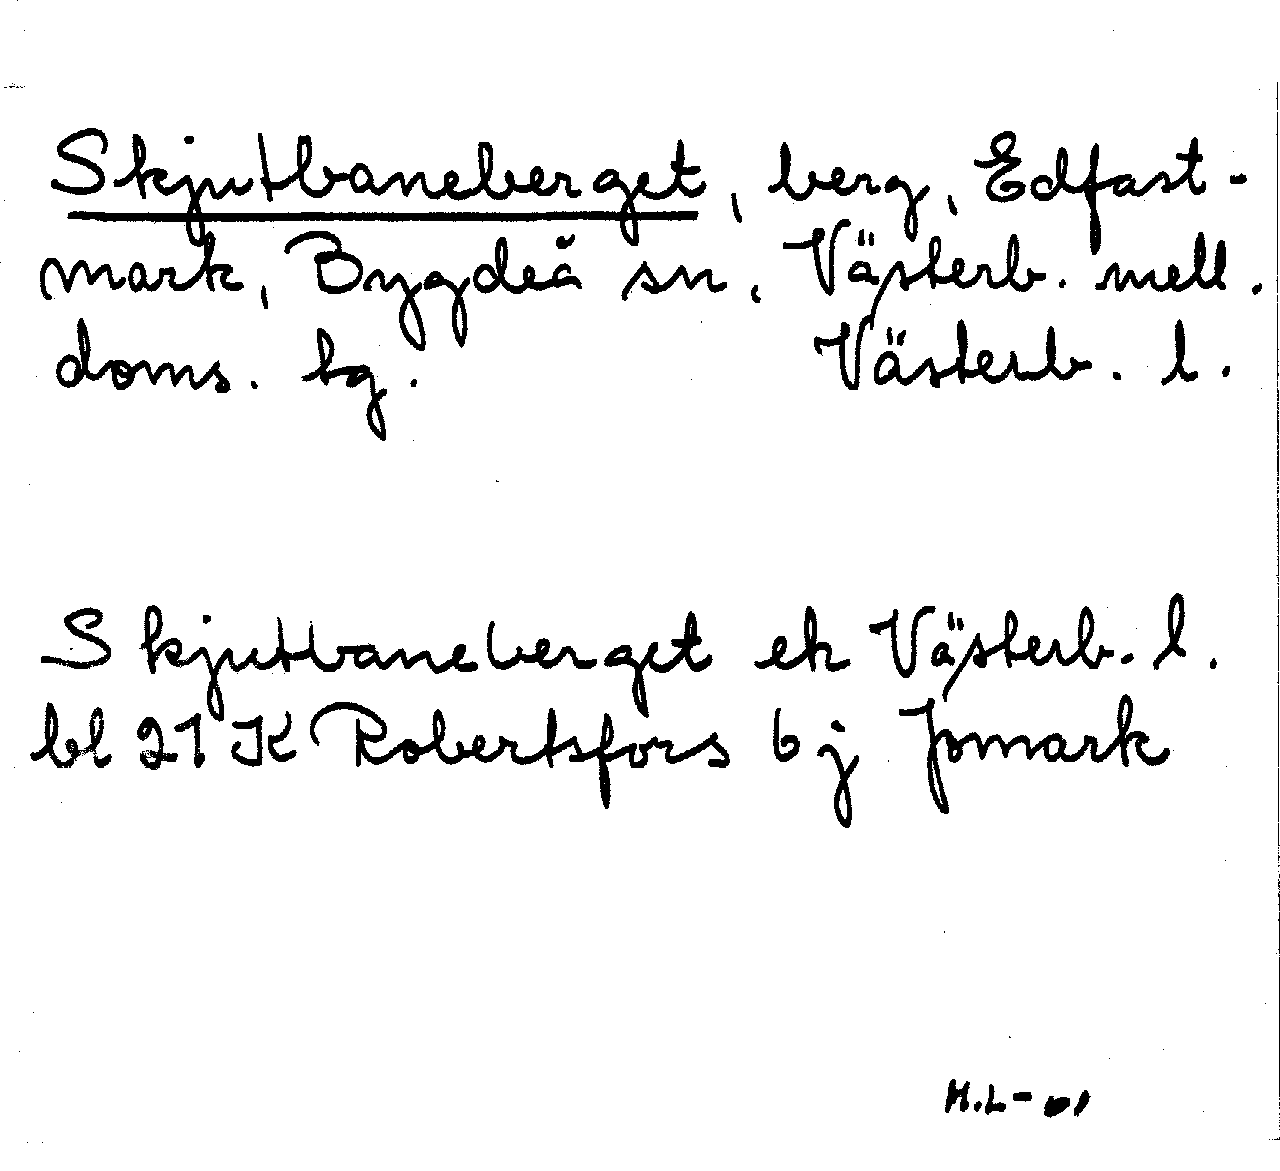 Skjutbaneberget, berg, Edfast-
mark, Bygdeå sn, Västerb. mell.
doms. tg. Västerb. l.
Skjutbaneberget ek Västerb. l.
bl 21 K Robertsfors 6 j Jomark
H.L-